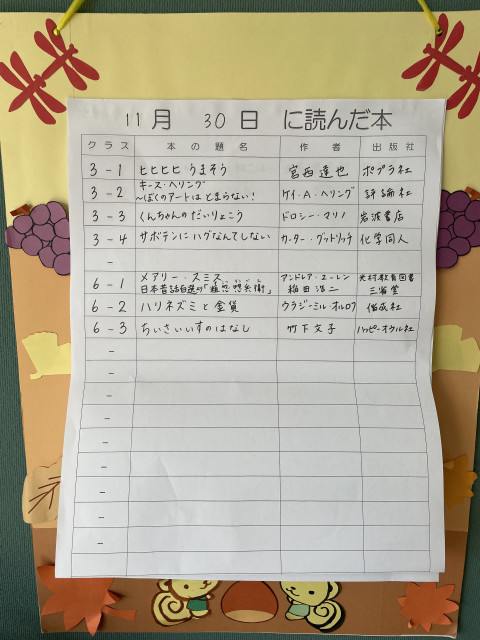 11月 30日 に読んだ本
クラス 本の題名 作者 出版社
3-1 ヒヒヒヒうまそう 宮西達也 ポプラ社
3-2 キース・ヘリング ~ぼくのアートはとまらない! ケイ・A・ヘリング 評論社
3-3 くんちゃんのだいりょこう ドロシー・マリノ 岩波書店
3-4 サボテンにハグなんてしない カーター・グッドリッチ 化学同人
-
6-1 メアリー・スミス アンドレア・ユーレン 光村教育図書
日本昔話百選の「 稲田浩二 三省堂
6-2 ハリネズミと金貨 ウラジーミル・オルロフ 偕成社
6-3 ちいさいいすのはなし 竹下文子 ハッピーオウル社
-
-
-
-
-
-
-
-
-